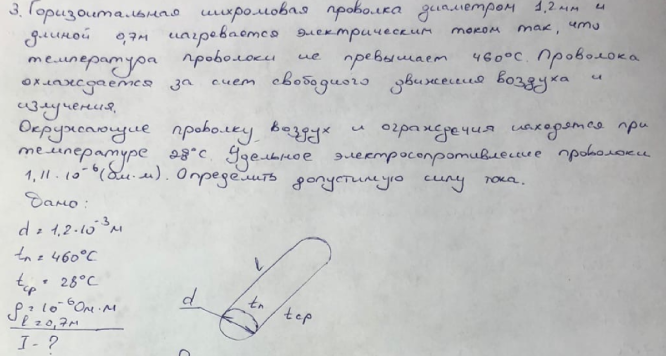 3. Горизонтальная нихромовая проволка диаметром 1,2мм и
длиной 0,7м нагревается электрическим током так, что
температура проволоки не превышает 460°С. Проволока
охлаждается за счет свободного движения воздуха и
излучения.
Окружающие проволку воздух и ограждения находятся при
температуре 28°С. Удельное электросопротивление проволоки
1,11·10⁻⁶(Ом·м). Определить допустимую силу тока.
Дано:
d = 1,2·10⁻³м
tп = 460°С
tср = 28°С
ρ = 10⁻⁶Ом·м
l = 0,7м
I - ?
l
d
tп
tср